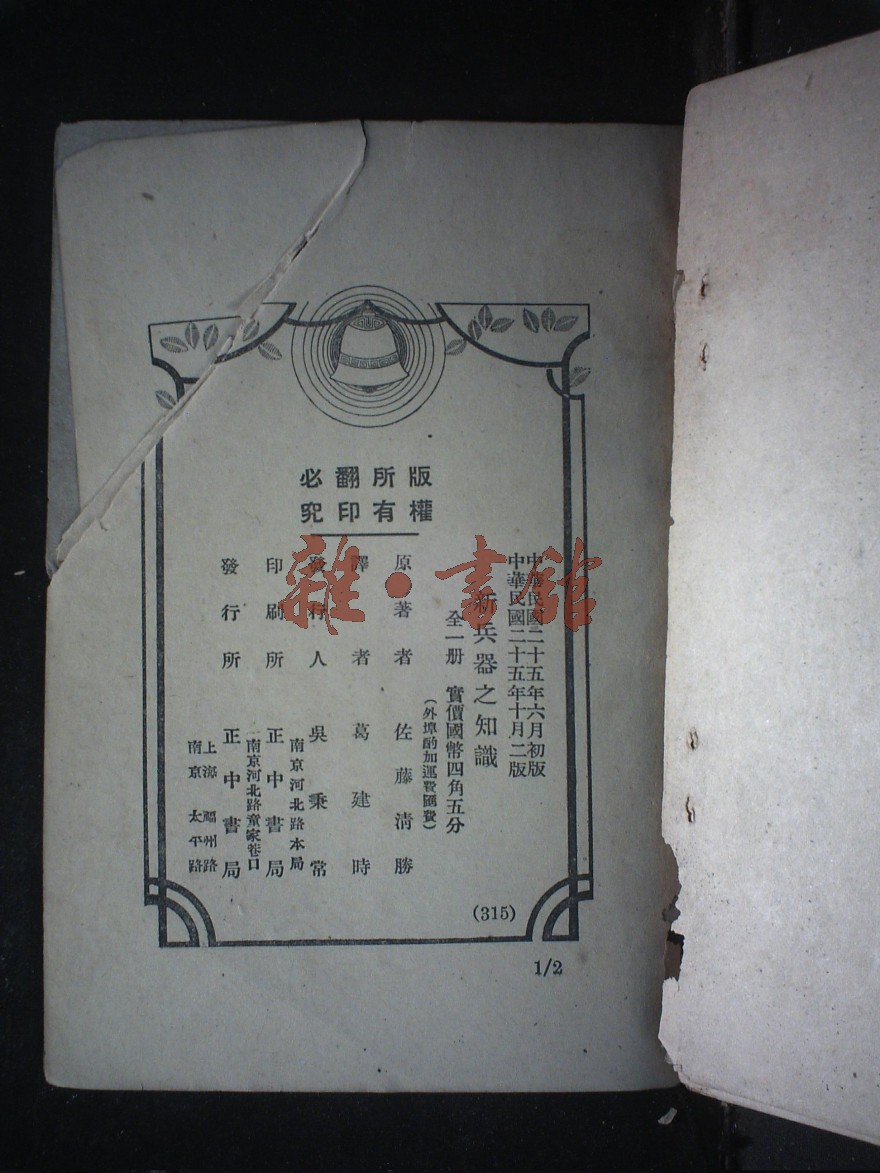 版權
所有
翻印
必究
中華民國二十五年六月初版
中華民國二十五年十月二版
新兵器之知識
全一册 實價國幣四角五分
(外埠酌加運費匯費)
原著者 佐藤清勝
譯者 葛建時
發行人 吳秉常
南京河北路本局
印刷所 正中書局
南京河北路童家巷口
發行所 正中書局
上海福州路
南京太平路
(315)
1/2
雜·書館